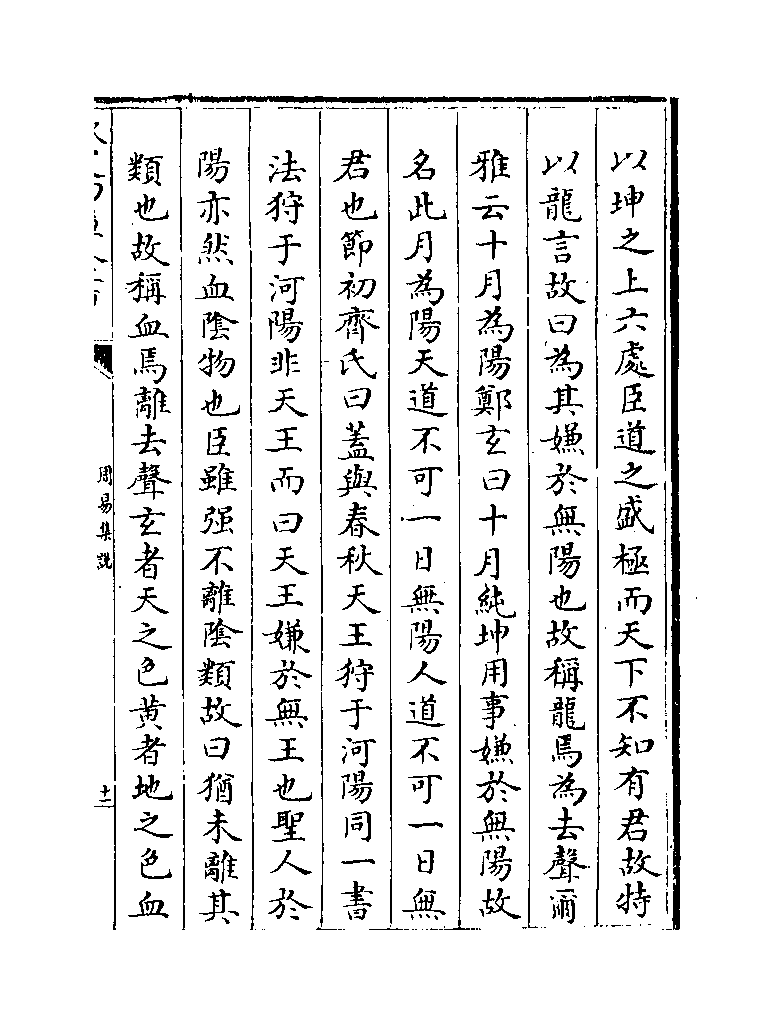 以坤之上六處臣道之盛極而天下不知有君故特
以龍言故曰為其嫌於無陽也故稱龍焉為去聲爾
雅云十月為陽鄭玄曰十月純坤用事嫌於無陽故
名此月為陽天道不可一日無陽人道不可一日無
君也節初齊氏曰蓋與春秋天王狩于河陽同一書
法狩于河陽非天王而曰天王嫌於無王也聖人於
陽亦然血陰物也臣雖强不離陰類故曰猶未離其
類也故稱血焉離去聲玄者天之色黄者地之色血
周易集説
十二